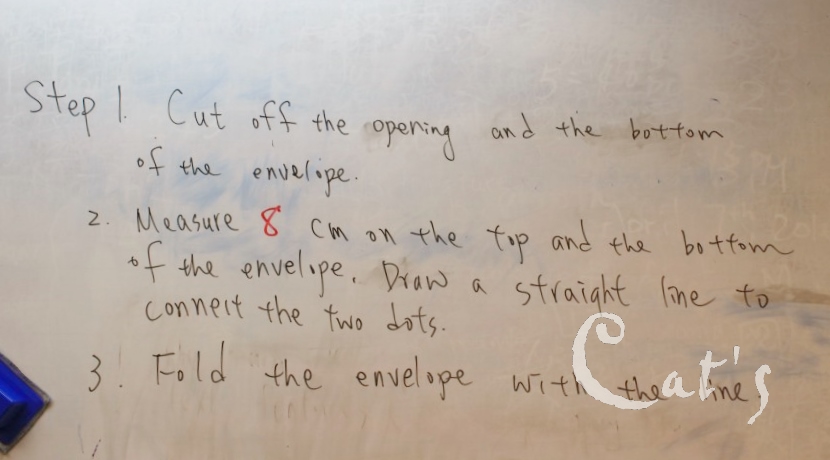 Step 1. Cut off the opening and the bottom
of the envelope.
2. Measure 8 cm on the top and the bottom
of the envelope. Draw a straight line to
connect the two dots.
3. Fold the envelope with the line.
Cat's